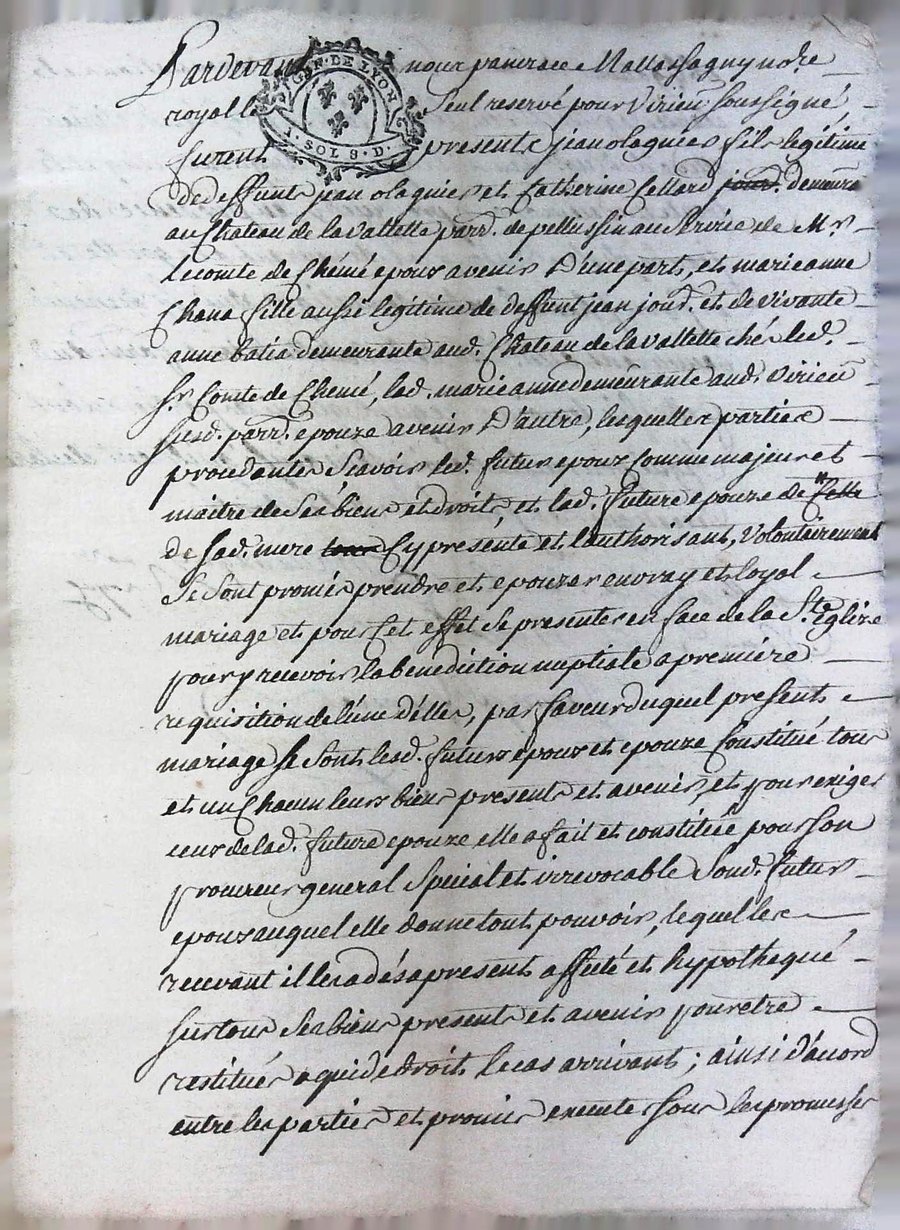 Pardevant nous pancrace Mattassagny no.re
GEN. DE LYON
1. SOL 8. D.
royal le Seul reservé pour Virieu soussigné
furent presents jean olagnier fils legitime
de deffunts jean olagnier et Catherine Cellard jourd. demeurt
au Chateau de la Vallette parr. de pellussin au Service de Mr
Le comte de Chéné epoux avenir D'une part, et marieanne
Chana fille aussi legitime de deffunt jean joud. et de vivante
anne batia demeurante aud. Chateau de la vallette ché led.
Sr Comte de Chené, lad. marieanne demeurante aud. Virieu
susd. parr. epouze avenir D'autre, lesquelles parties
procedantes Scavoir led. futur epoux comme majeur et
maitre de Ses biens et droits et lad. future epouze de Celle
de sad. mere Cy presente et l'authorisant, volontairement
Se Sont promis prendre et epouzer en vray et loyal
mariage et pour Cet effet Se presenter en face de la Ste Eglize
pour y recevoir la benediction nuptiale a première
requisition de l'une d'elles, par faveur duquel present
mariage Se Sont lesd. futurs epoux et epouze Constitué tous
et un Chacun leurs biens presents et avenir, et pour exiger
ceux de lad. future epouze elle a fait et constitué pour Son
procureur general Special et irrevocable Sond. futur
epoux auquel elle donne tout pouvoir, lequel les
recevant il les a dés apresent affecté et hypothequé
sur tous Ses biens presents et avenir pour etre
restitués a qui de droit le cas arrivant ; ainsi d'acord
entre les parties et promis executer sous les promesses